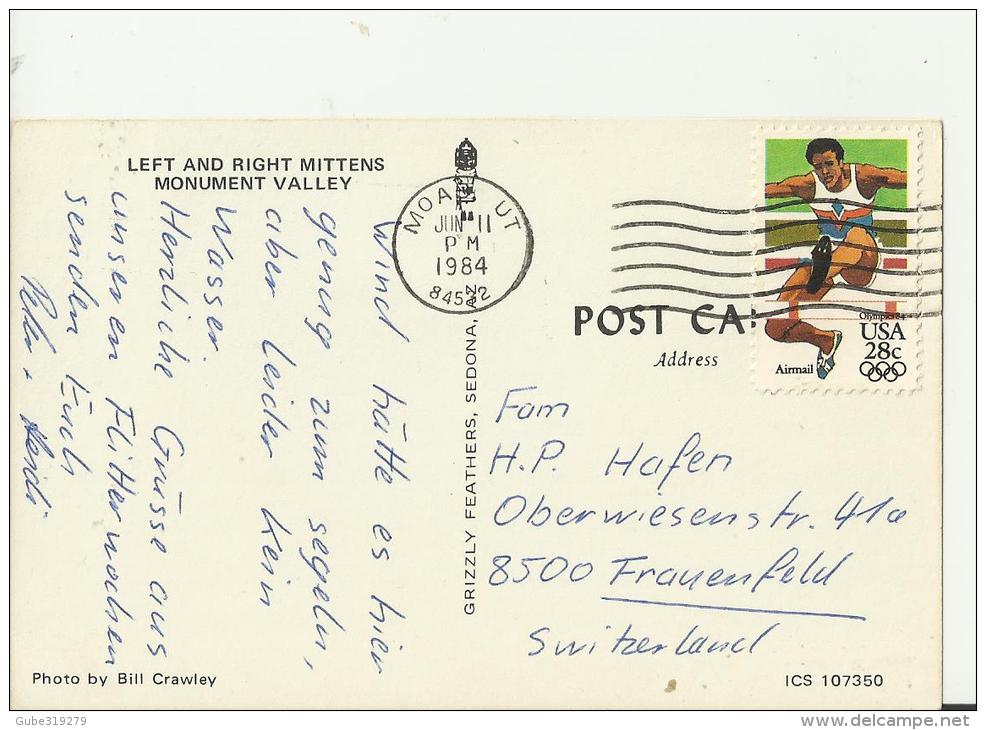 LEFT AND RIGHT MITTENS
MONUMENT VALLEY
Wind hätte es hier
genug zum segeln,
aber leider kein
Wasser.
Herzliche Grüsse aus
unseren Flitterwochen
senden Euch
Peter + Heidi
GRIZZLY FEATHERS, SEDONA, AZ
MOAB UT
JUN 11
PM
1984
84532
POST CA
Address
Olympics 84
USA
28c
Airmail
Fam
H.P. Hafen
Oberwiesenstr. 41a
8500 Frauenfeld
Switzerland
Photo by Bill Crawley
ICS 107350
Gube319279
delcampe.net